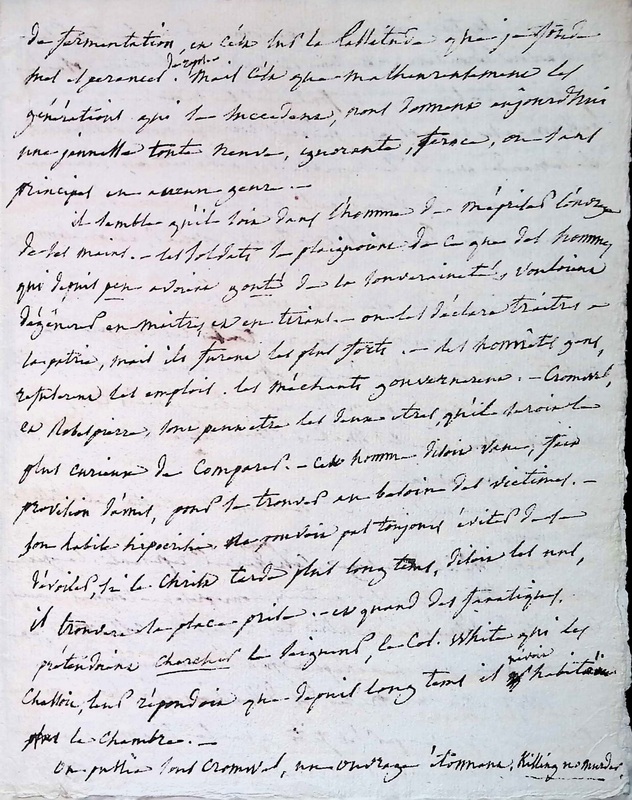 de fermentation, en c'est sur la lassitude que je fonde
mes esperances de repos. mais c'est que malheureusement les
générations qui se succedent, vous donnent aujourd'hui
une jeunesse toute neuve, ignorante, feroce, ou sans
principes en aucun genre. —
il semble qu'il soit dans l'homme de mépriser l'ouvrage
de ses mains. — les soldats se plaignoient de ce que des hommes
qui depuis peu avoient gouté de la souveraineté, vouloient
dégénérer en maitres, et en tirans — on les déclara traitres a
la patrie, mais ils furent les plus forts. — les honnêts gens,
refuserent les emplois. les méchants gouvernerent. — Cromwel,
et Robespierre, sont peut etre les deux etres, qu'il seroit le
plus curieux de comparer. — cet homme disoit Vane, fait
provision d'amis, pour se trouver au besoin des victimes. —
son habile hipocrisie ne pouvoit pas toujours éviter de se
dévoiler, si le Christ tarde plus long tems, disoit les uns,
il trouvera la place prise. — et quand des fanatiques,
prétendoient chercher le seigneur, le Col. White qui les
chassoit, leur répondoit que depuis long tems il n'avoit habité
la chambre. —
On publia sous Cromwel, un ouvrage étonnant, Killing no murder,